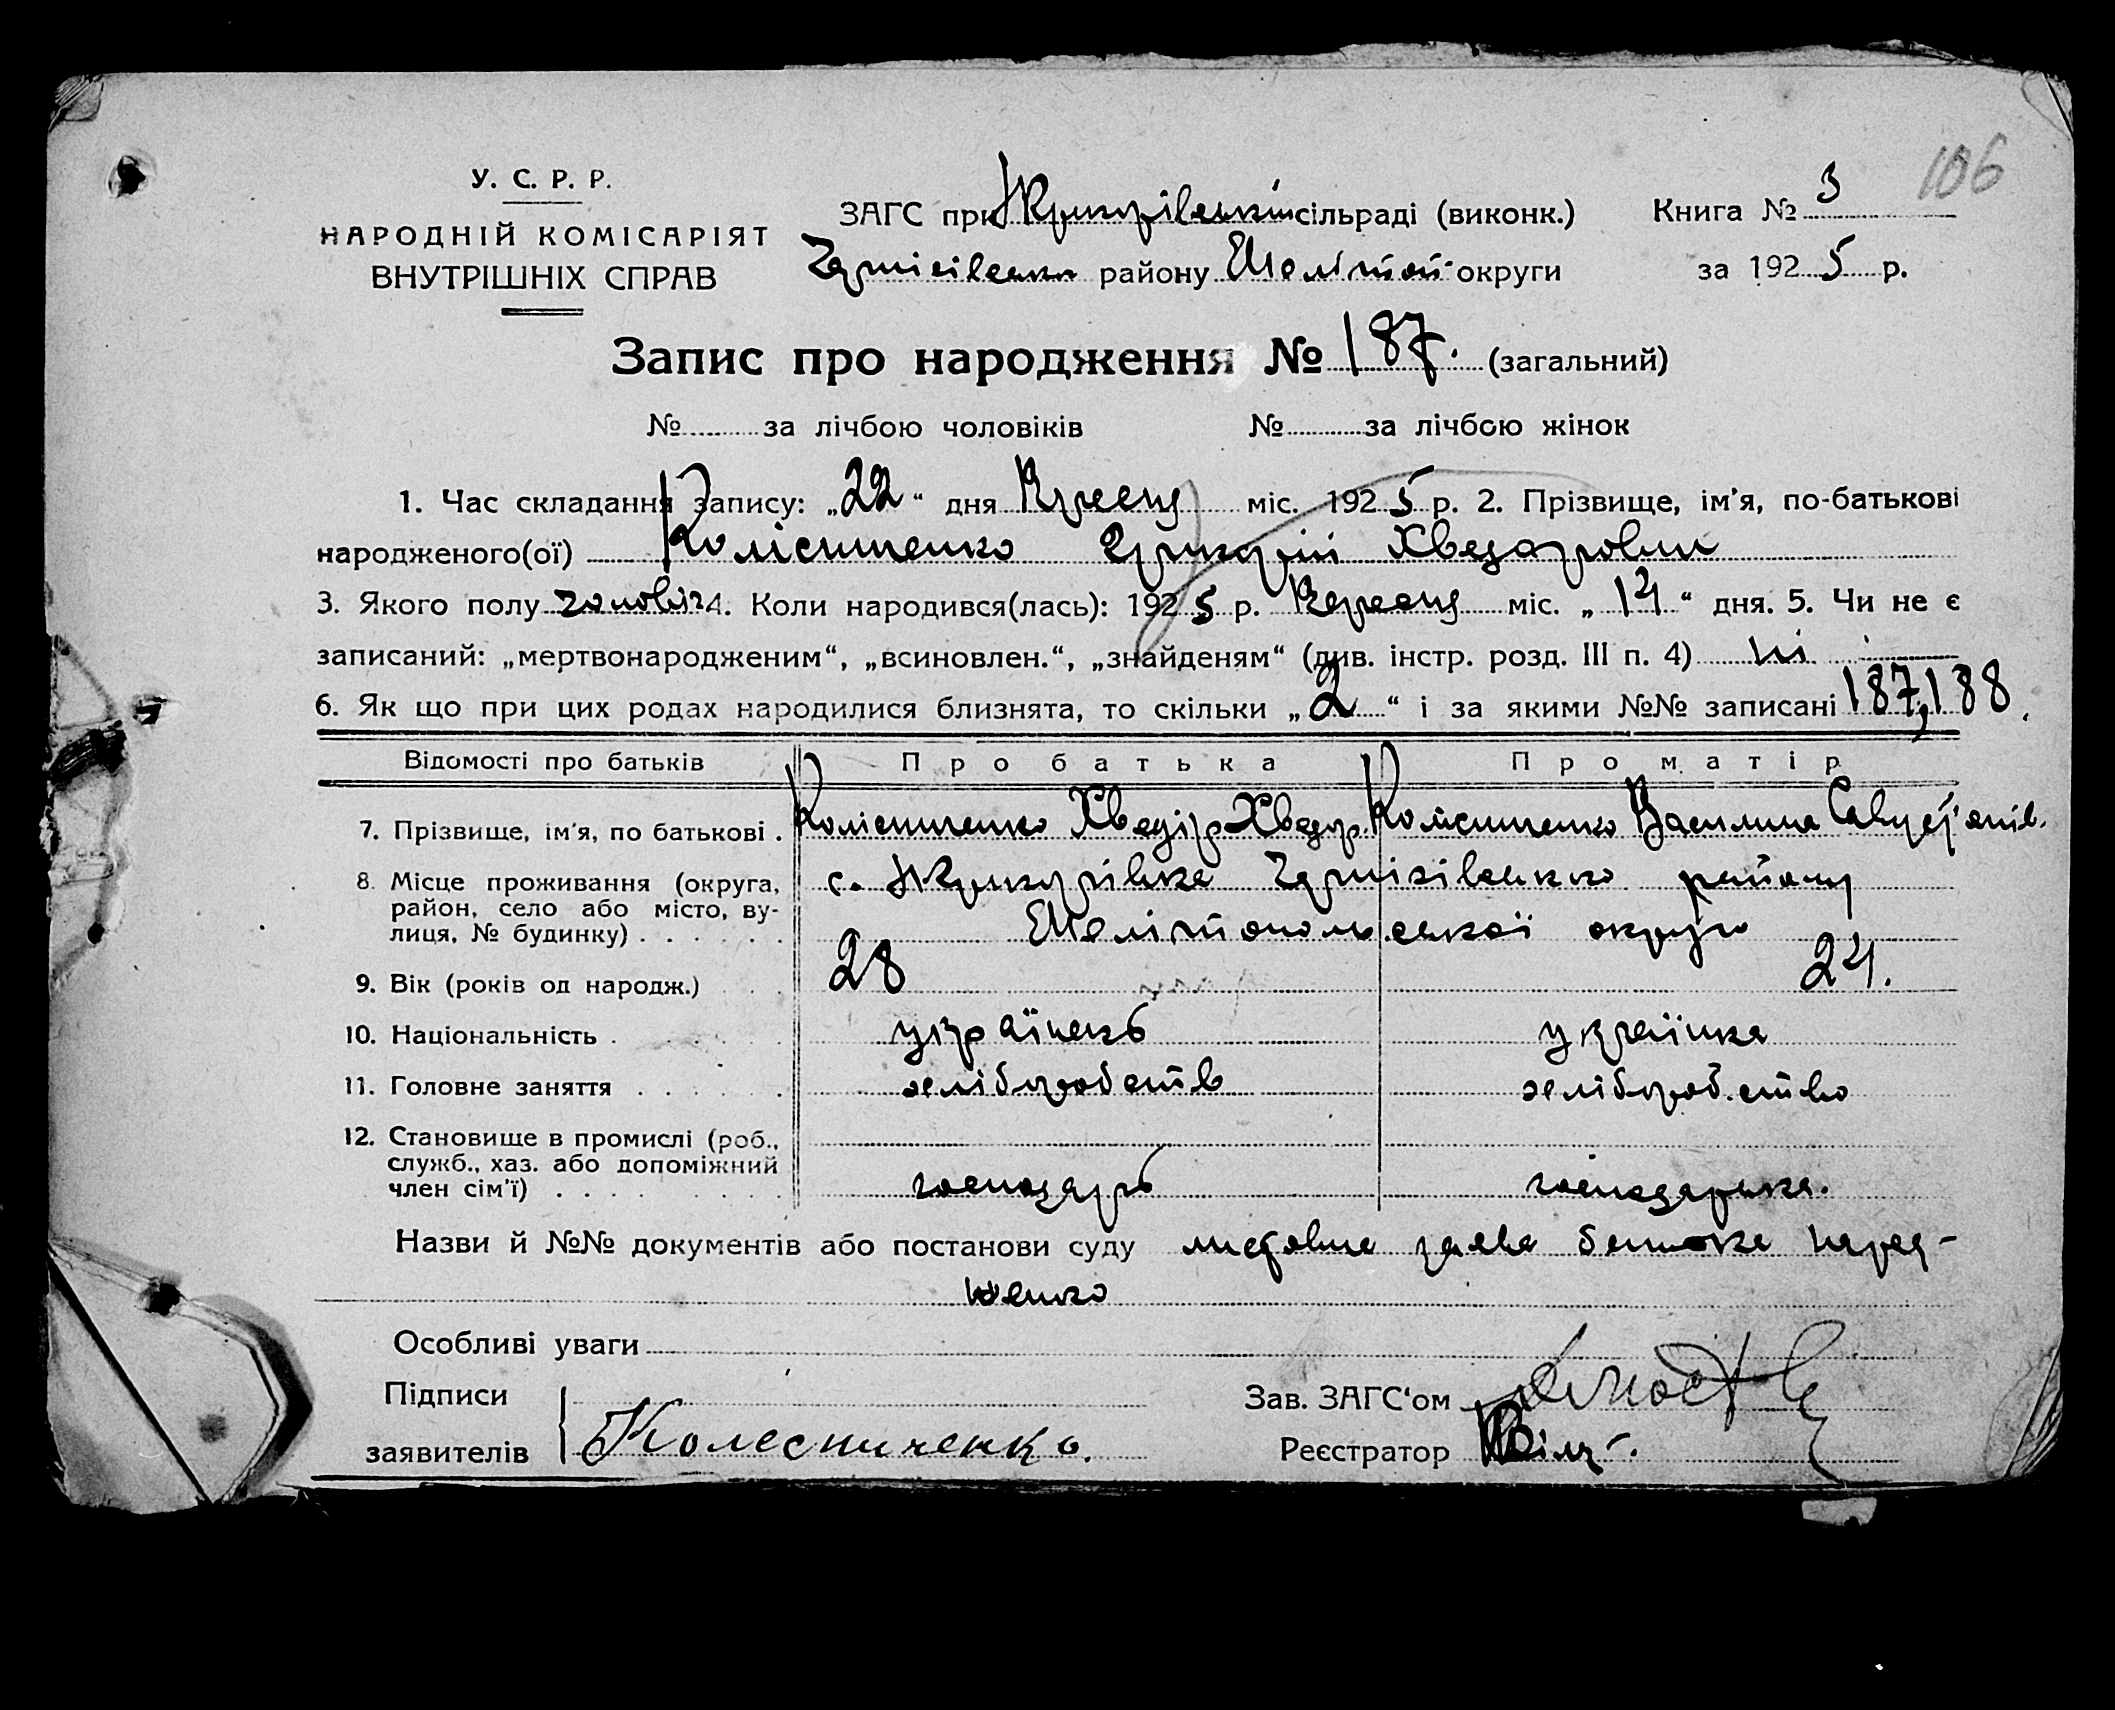 106
У. С. Р. Р.
НАРОДНІЙ КОМІСАРІЯТ
ВНУТРІШНІХ СПРАВ
ЗАГС при сільраді (виконк.)
Чернігівськ району Мелітоп. округи
Книга № 3
за 1925 р.
Запис про народження № 187. (загальний)
№ за лічбою чоловіків № за лічбою жінок
1. Час складання запису: „22“ дня Вересня міс. 1925 р. 2. Прізвище, ім'я, по-батькові
народженого(ої) Колісниченко Григорій Хведорович
3. Якого полу чоловіч 4. Коли народився(лась): 1925 р. Вересня міс. „14“ дня. 5. Чи не є
записаний: „мертвонародженим“, „всиновлен.“, „знайденям“ (див. інстр. розд. III п. 4) ні
6. Як що при цих родах народилися близнята, то скільки „2“ і за якими №№ записані 187, 188.
Відомості про батьків Про батька Про матір
7. Прізвище, ім'я, по батькові . Колісниченко Хведір Хведор. Колісниченко Василина
8. Місце проживання (округа, район, село або місто, вулиця, № будинку) . . . . . . с. Чернігівського району
Мелітопольської округи
9. Вік (років од народж.) . . 28 24.
10. Національність . . . . . українець українка
11. Головне заняття . . . . . хліборобств хлібороб.ство
12. Становище в промислі (роб., служб., хаз. або допоміжний член сім'ї) . . . . . . . . . господарь господарька.
Назви й №№ документів або постанови суду заява батька народ-
женого
Особливі уваги
Підписи
заявителів Колесниченко.
Зав. ЗАГС'ом
Реєстратор